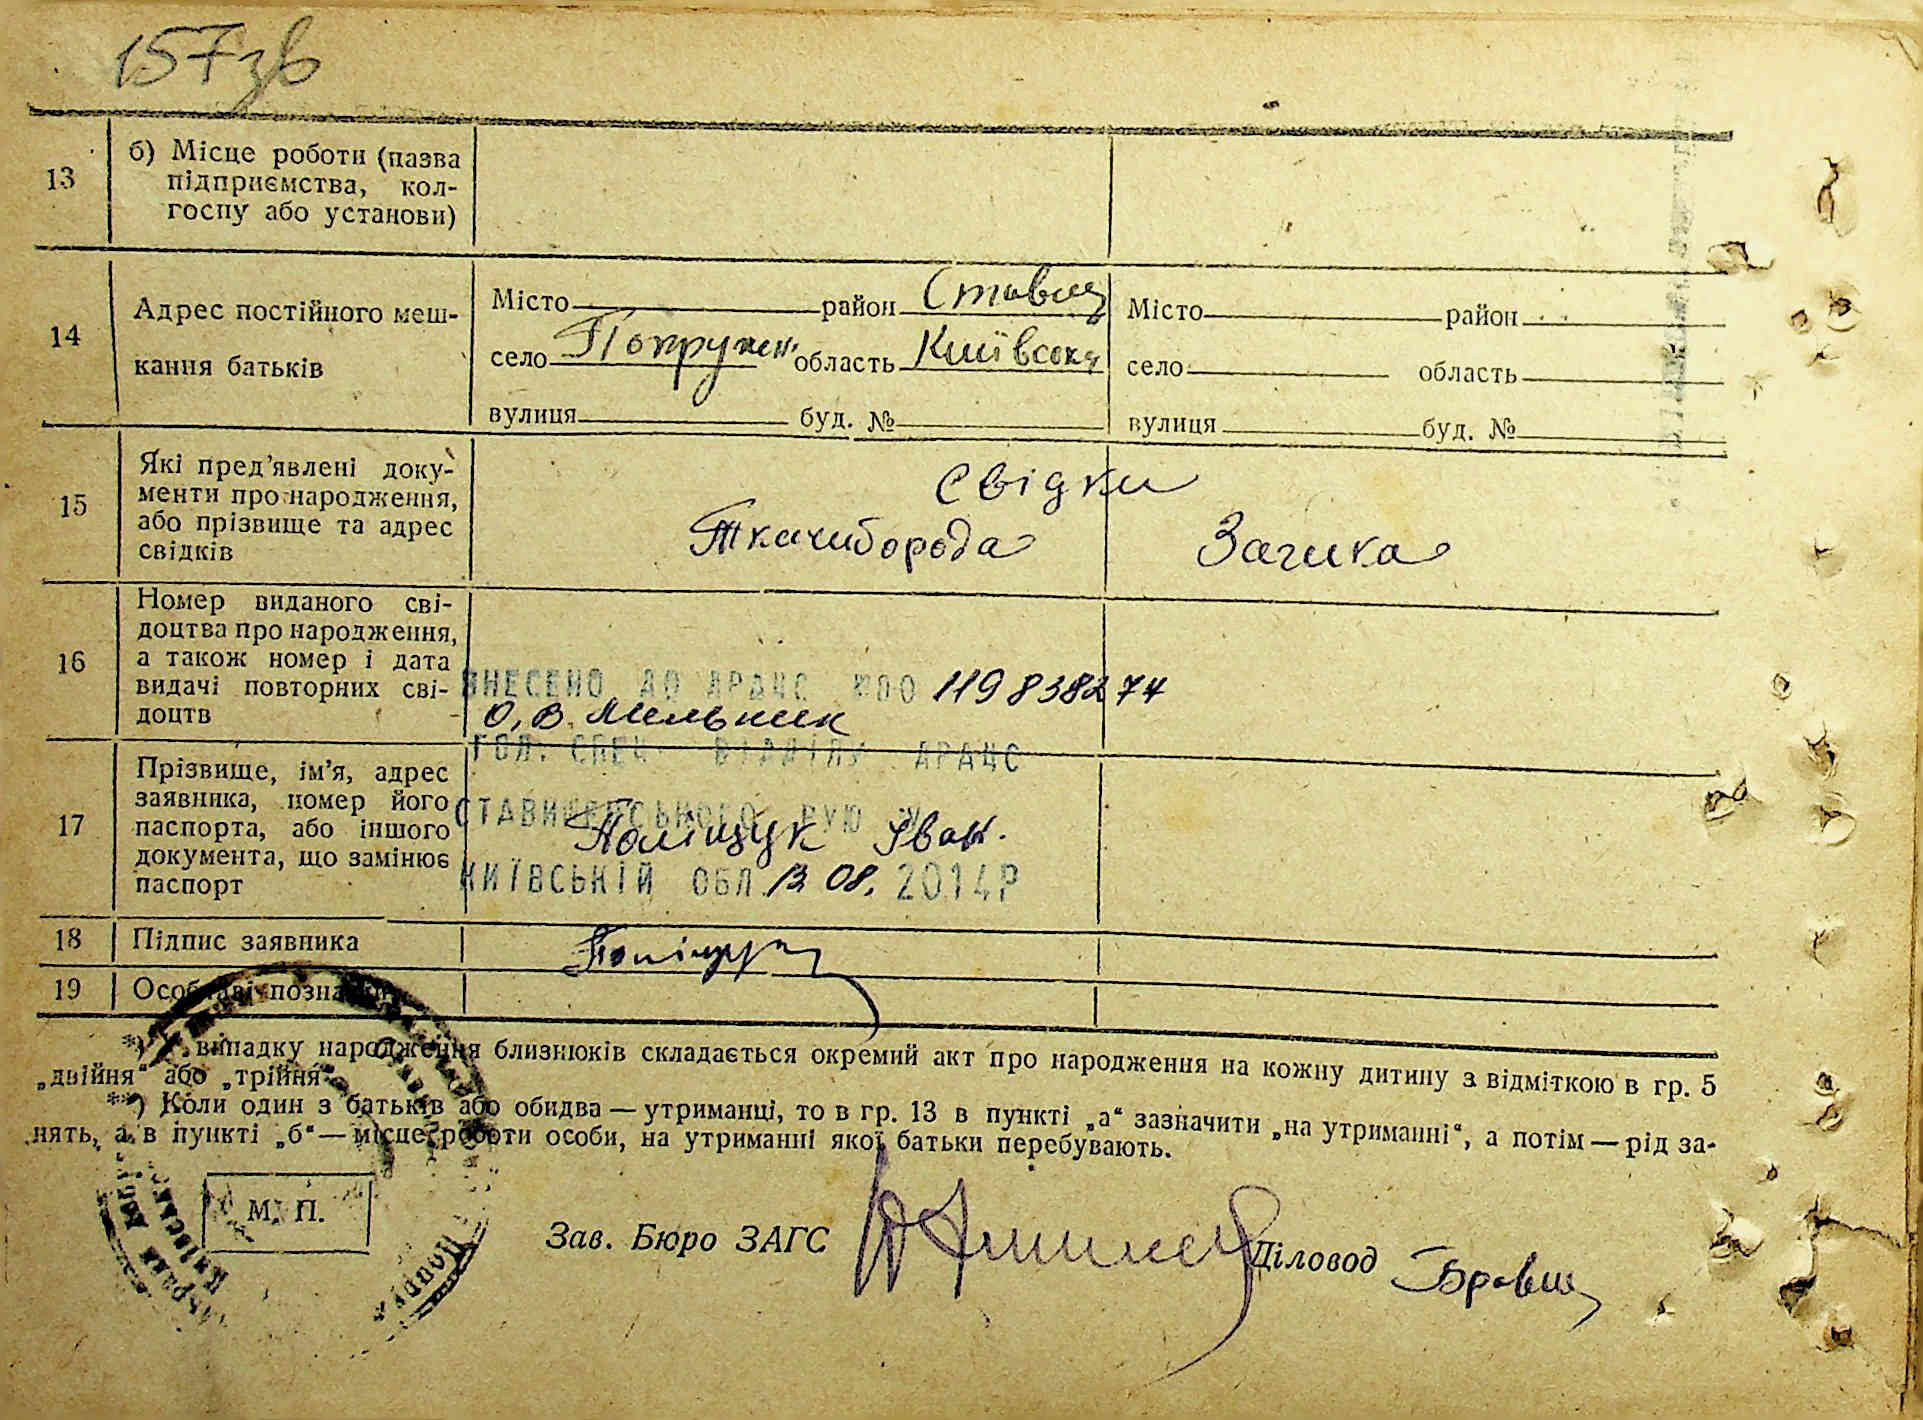 157зв
13 б) Місце роботи (назва
підприємства, кол-
госпу або установи)
14 Адрес постійного меш-
кання батьків
Місто район Ставищ
село Попружн. область Київська
вулиця буд. №
Місто район
село область
вулиця буд. №
15 Які пред'явлені доку-
менти про народження,
або прізвище та адрес
свідків
Свідки
Ткачиборода Загика
16 Номер виданого сві-
доцтва про народження,
а також номер і дата
видачі повторних сві-
доцтв
ВНЕСЕНО ДО ДРАЦС №00 119838274
О.В. Мельник
ГОЛ. СПЕЦ. ВІДДІЛУ ДРАЦС
17 Прізвище, ім'я, адрес
заявника, номер його
паспорта, або іншого
документа, що замінює
паспорт
СТАВИЩЕНСЬКОГО РУЮ У
Поліщук Іван.
КИЇВСЬКІЙ ОБЛ. 13.08. 2014Р
18 Підпис заявника Поліщук
19 Особливі позначки
*) У випадку народження близнюків складається окремий акт про народження на кожну дитину з відміткою в гр. 5
„двійня“ або „трійня“.
**) Коли один з батьків або обидва — утриманці, то в гр. 13 в пункті „а“ зазначити „на утриманні“, а потім — рід за-
нять, а в пункті „б“ — місце роботи особи, на утриманні якої батьки перебувають.
М. П.
Зав. Бюро ЗАГС Діловод